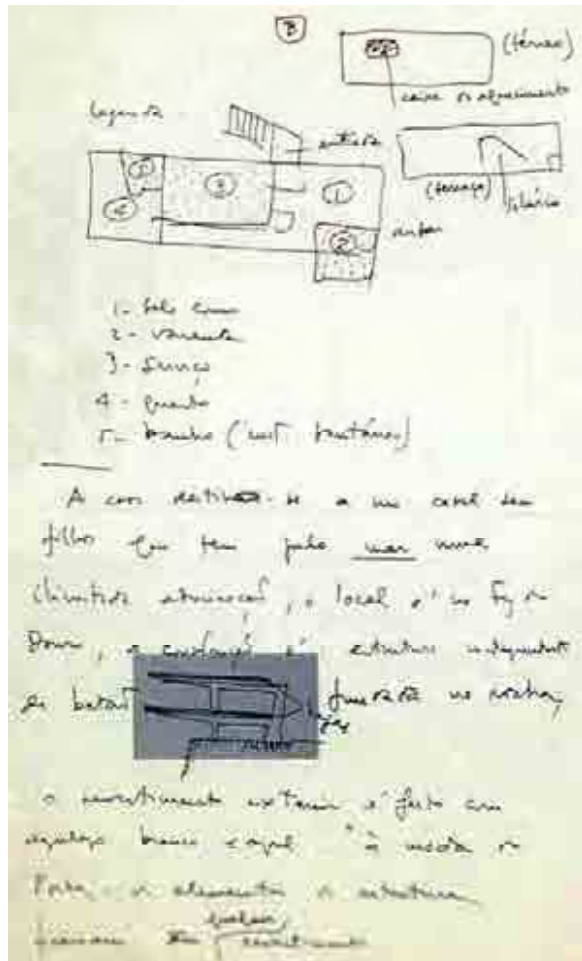 B
(térreo)
caixa de aquecimento
Legenda
entrada
5
3
1
4
2
(terraço)
solário
1 - Sala comum
2 - varanda
3 - Serviço
4 - quarto
5 - banho (inst. sanitárias)
A casa destina-se a um casal sem
filhos que tem pelo mar uma
ilimitada admiração, o local é na Foz do
Douro, a construção é estrutura independente
de betão fundada na rocha,
lajes
o revestimento exterior é feito com
azulejo branco e azul "à moda do
Porto, os elementos de estrutura
revestimento